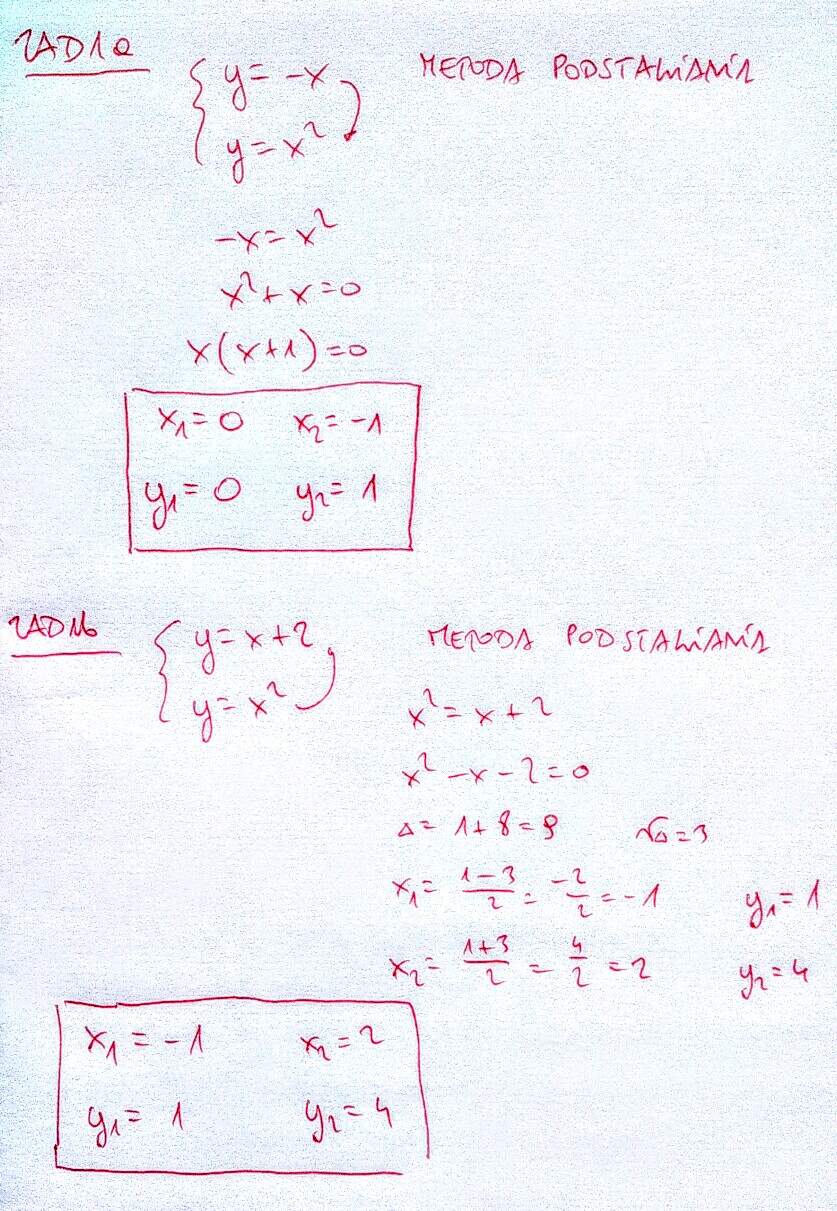 ZAD1a
{ y = -x METODA PODSTAWIANIA
y = x²
-x = x²
x² + x = 0
x(x+1) = 0
x₁ = 0 x₂ = -1
y₁ = 0 y₂ = 1
ZAD1b { y = x+2 METODA PODSTAWIANIA
y = x²
x² = x + 2
x² - x - 2 = 0
Δ = 1 + 8 = 9 √Δ = 3
x₁ = (1-3)/2 = -2/2 = -1 y₁ = 1
x₂ = (1+3)/2 = 4/2 = 2 y₂ = 4
x₁ = -1 x₂ = 2
y₁ = 1 y₂ = 4